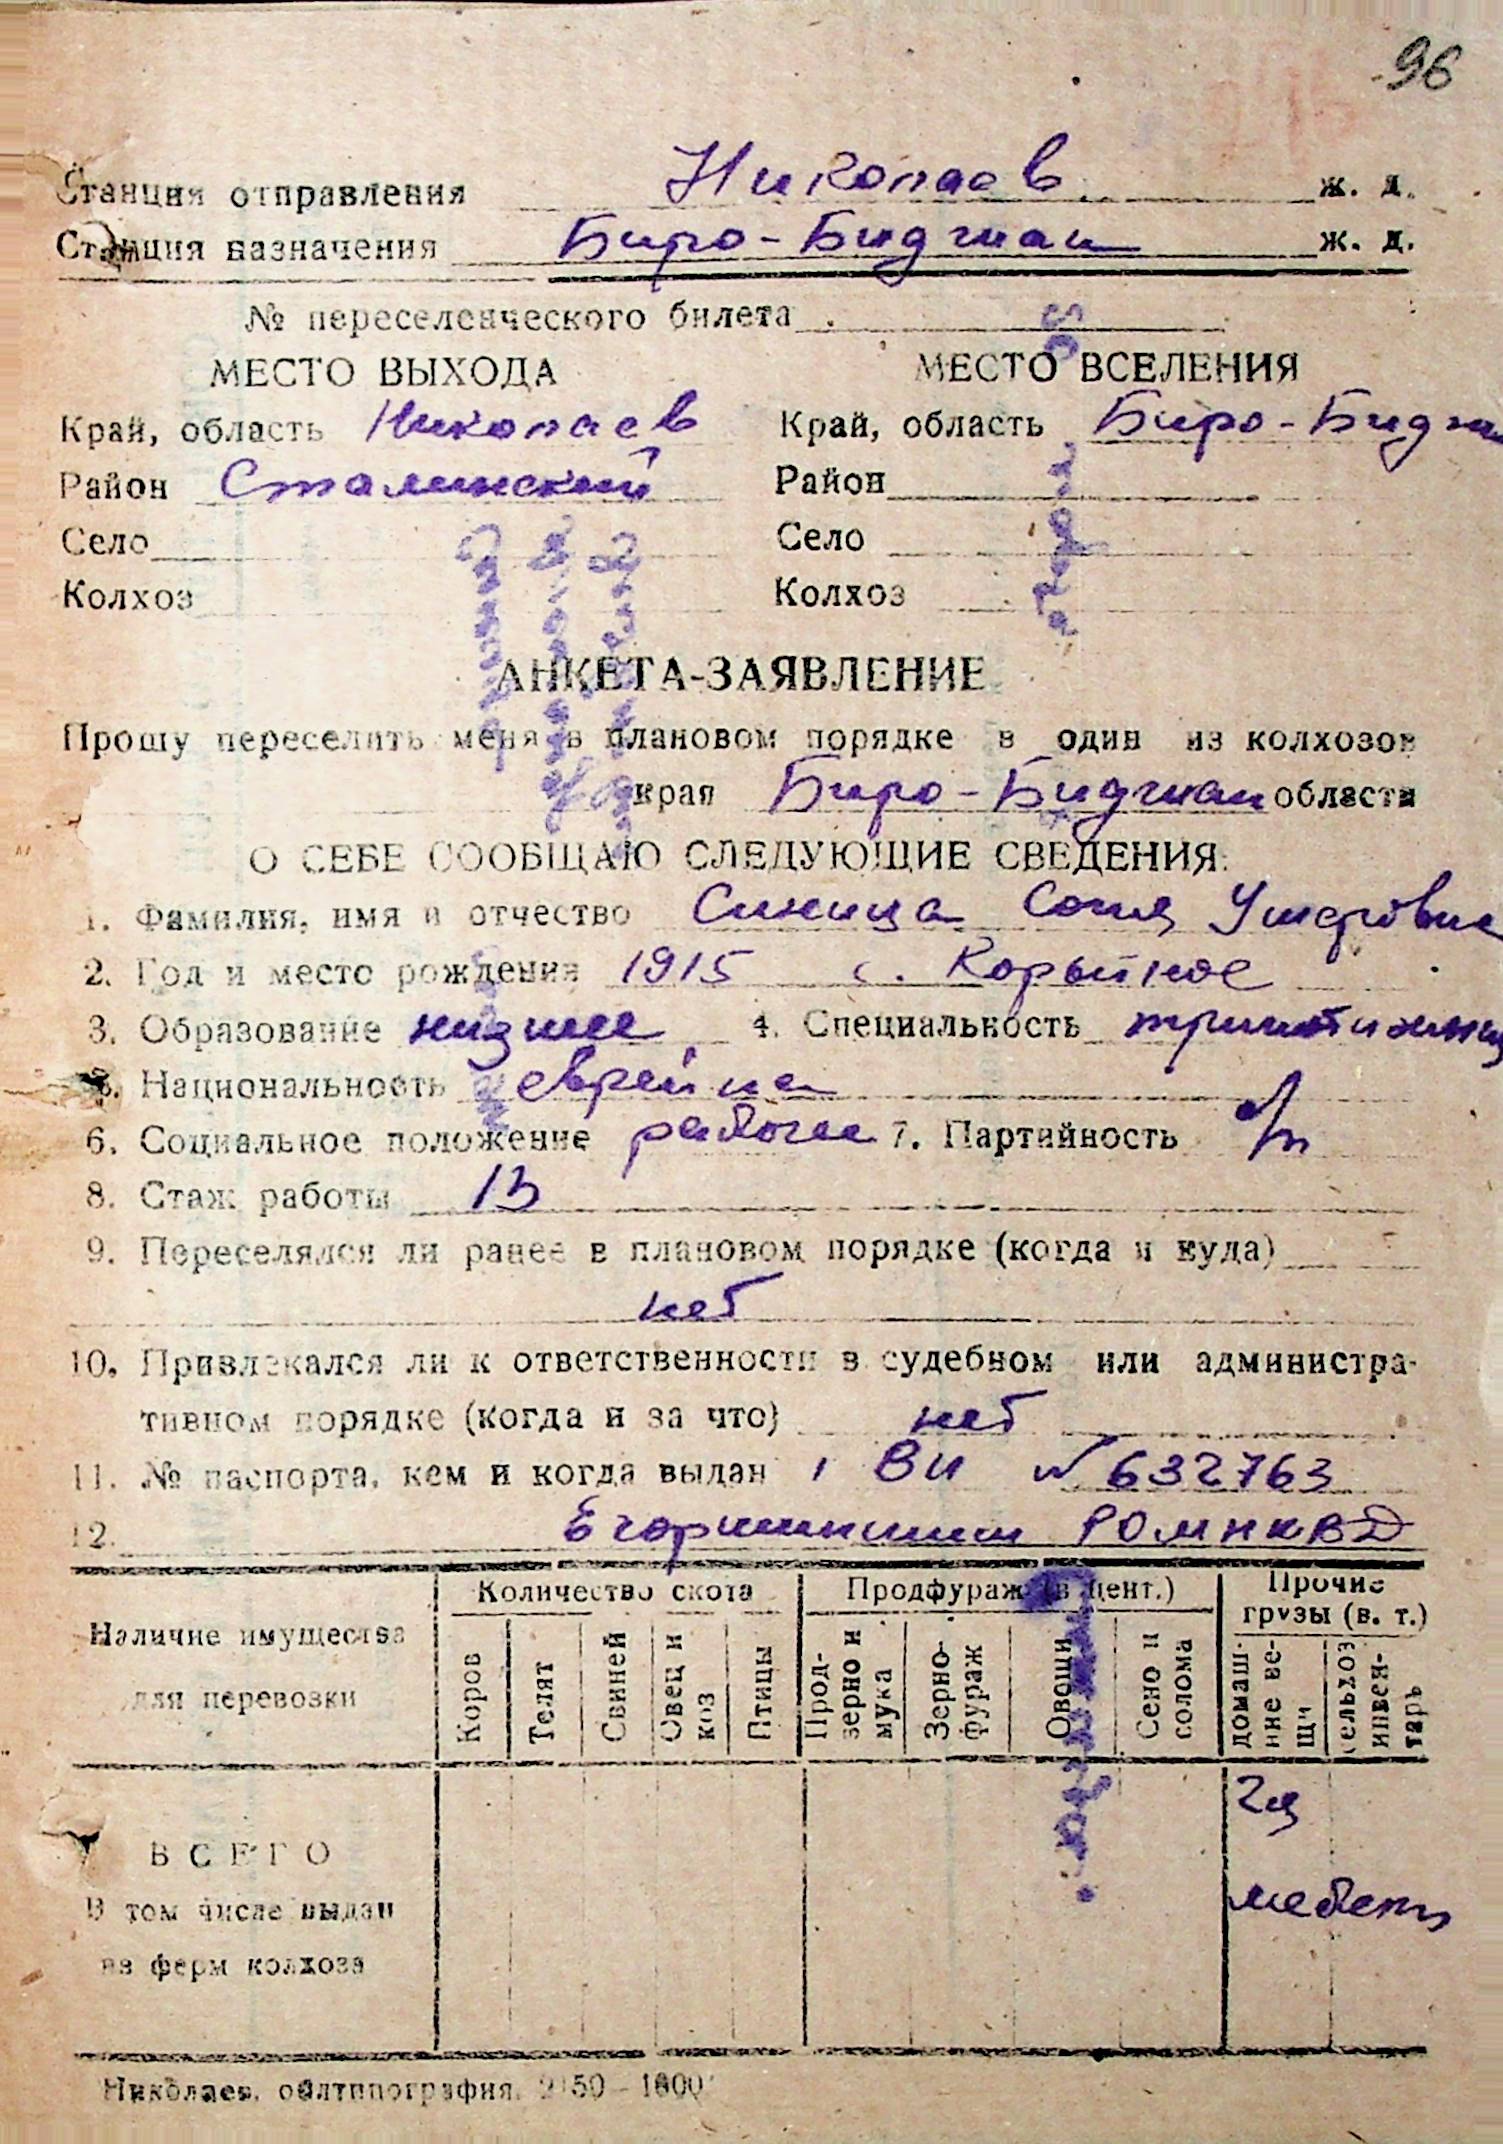 96
Станция отправления Николаев ж. д.
Станция назначения Биро-Биджан ж. д.
№ переселенческого билета
МЕСТО ВЫХОДА
Край, область Николаев
Район Сталинский
Село
Колхоз
МЕСТО ВСЕЛЕНИЯ
Край, область Биро-Биджан
Район
Село
Колхоз
АНКЕТА-ЗАЯВЛЕНИЕ
Прошу переселить меня в плановом порядке в один из колхозов
края Биро-Биджан области
О СЕБЕ СООБЩАЮ СЛЕДУЮЩИЕ СВЕДЕНИЯ:
1. Фамилия, имя и отчество Синица Соня Ушеровна
2. Год и место рождения 1915 с.
3. Образование низшее 4. Специальность
5. Национальность еврейка
6. Социальное положение рабочее 7. Партийность б/п
8. Стаж работы 13
9. Переселялся ли ранее в плановом порядке (когда и куда)
нет
10. Привлекался ли к ответственности в судебном или администра-
тивном порядке (когда и за что) нет
11. № паспорта, кем и когда выдан № 632763
12. РОМ НКВД
Наличие имущества
для перевозки
Количество скота
Коров
Телят
Свиней
Овец и
коз
Птицы
Продфураж (в цент.)
Прод-
зерно и
мука
Зерно-
фураж
Овощи
Сено и
солома
Прочие
грузы (в. т.)
домаш-
ние ве-
щи
сельхоз
инвен-
тарь
ВСЕГО
В том числе выдан
из ферм колхоза
2ц
мебель
Николаев, облтипография.